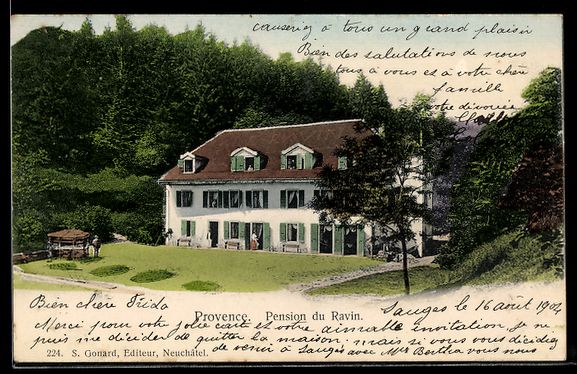 causeriez à tous un grand plaisir
Bien des salutations de nous
tous à vous et à votre chère
famille
votre dévouée
Sauges le 16 août 1904
Bien chère Frida
Provence. Pension du Ravin.
Merci pour votre jolie carte et votre aimable invitation je ne
puis me décider de quitter la maison. mais si vous vous décidiez
224. S. Gonard, Editeur, Neuchâtel.
de venir à Sauges avec Mlle Bertha vous nous